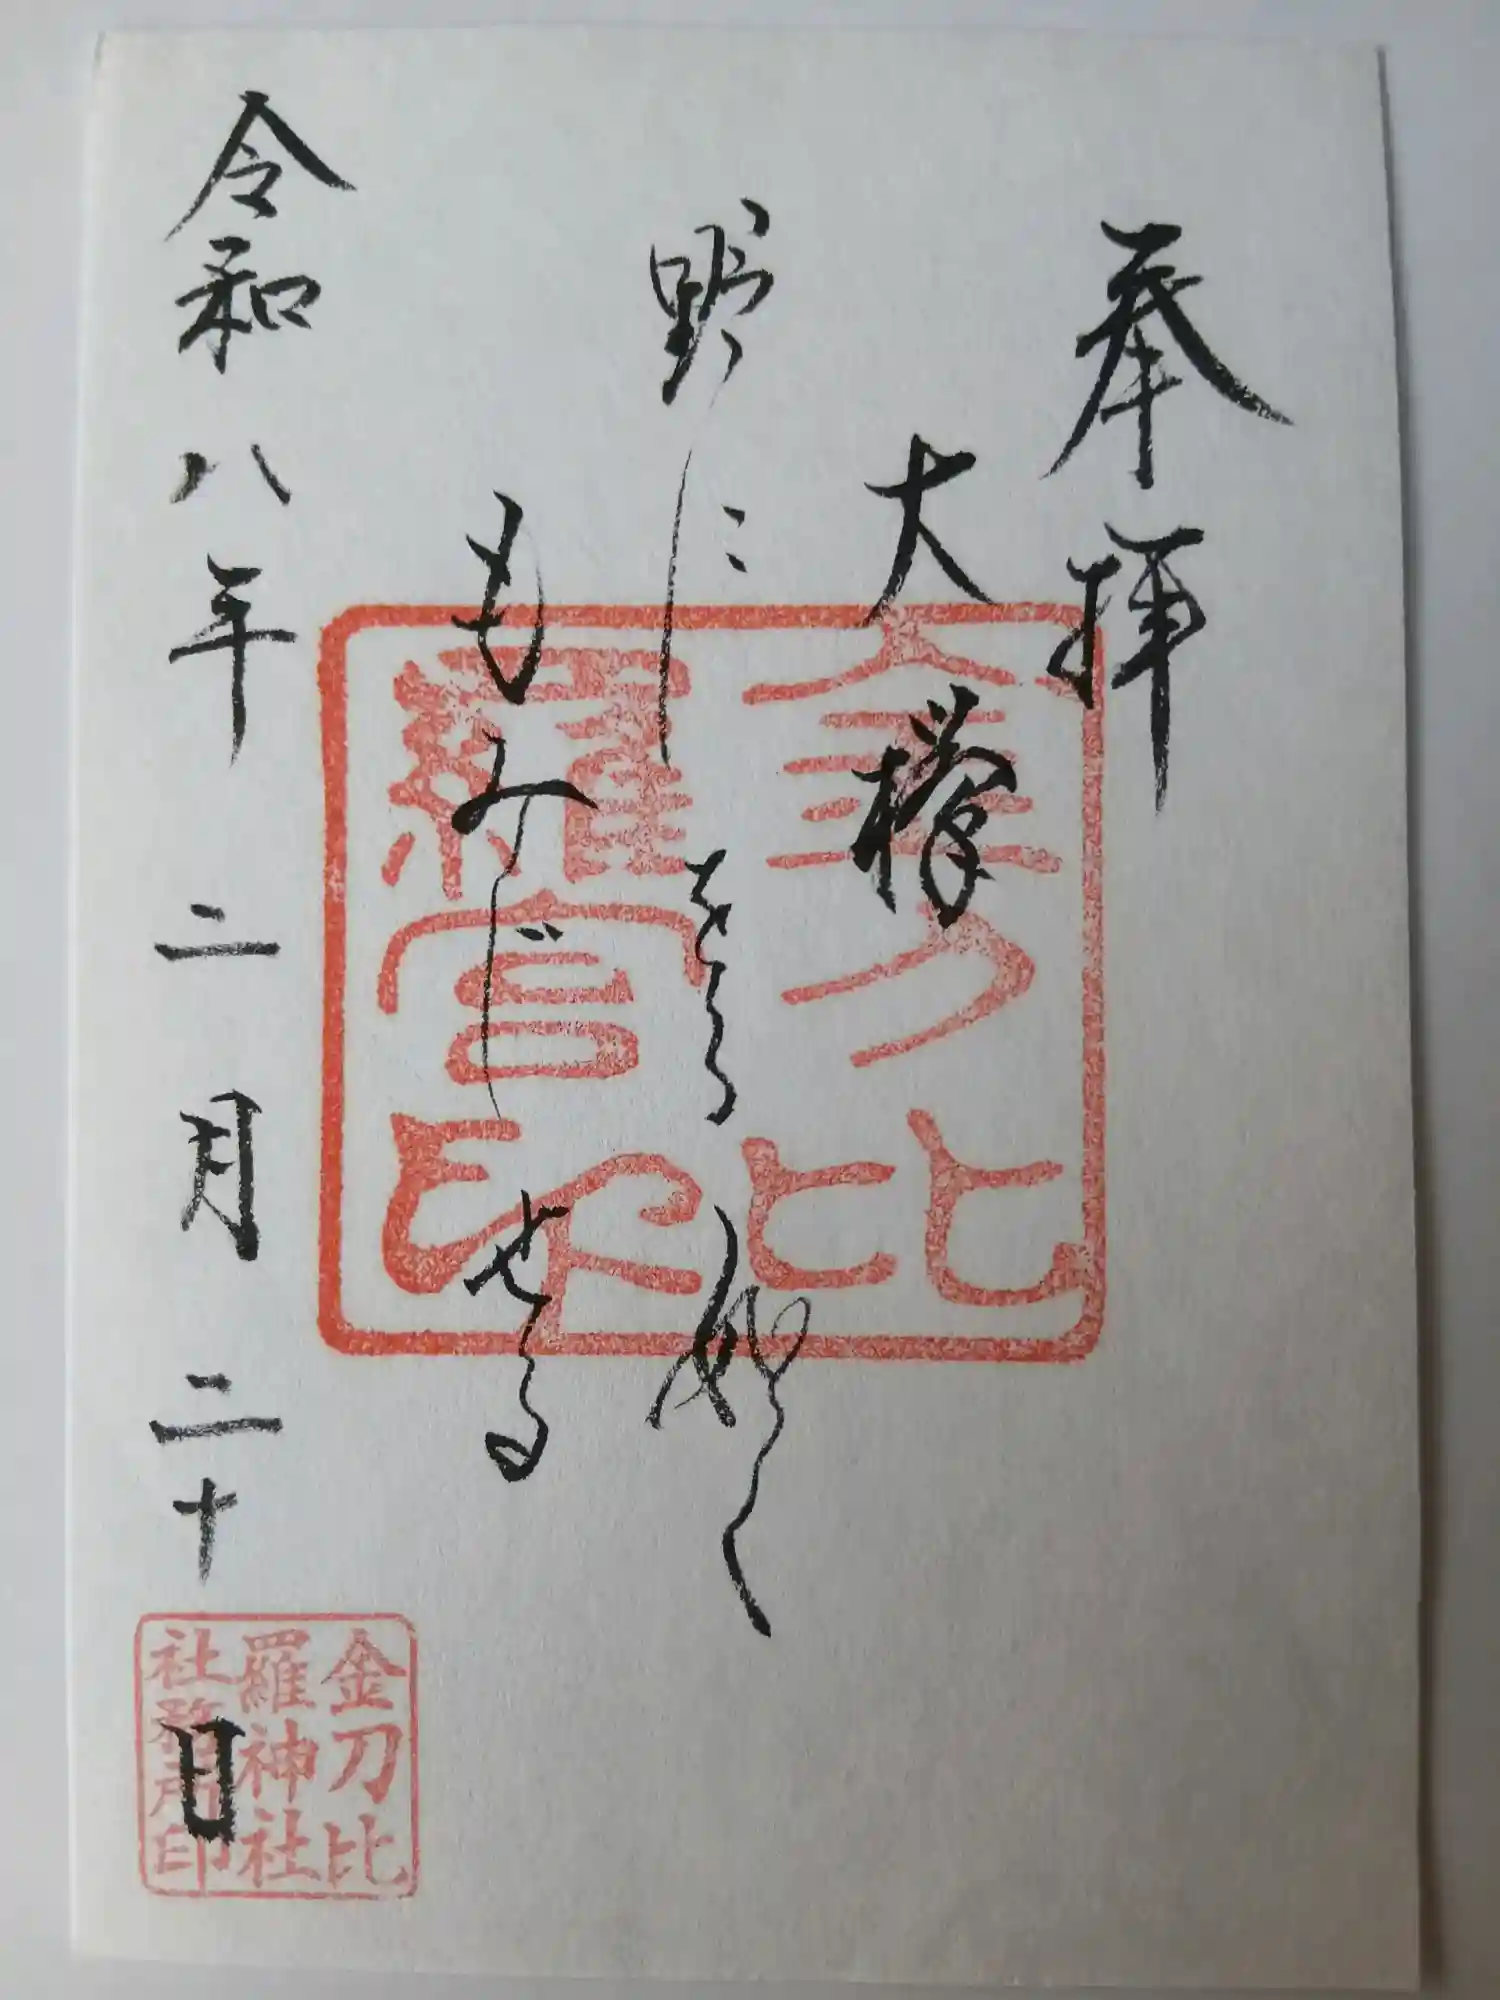 奉拝
大欅
野に 如く
もみじせる
令和八年二月二十日
金刀比
羅宮印
金刀比
羅神社
社務所印